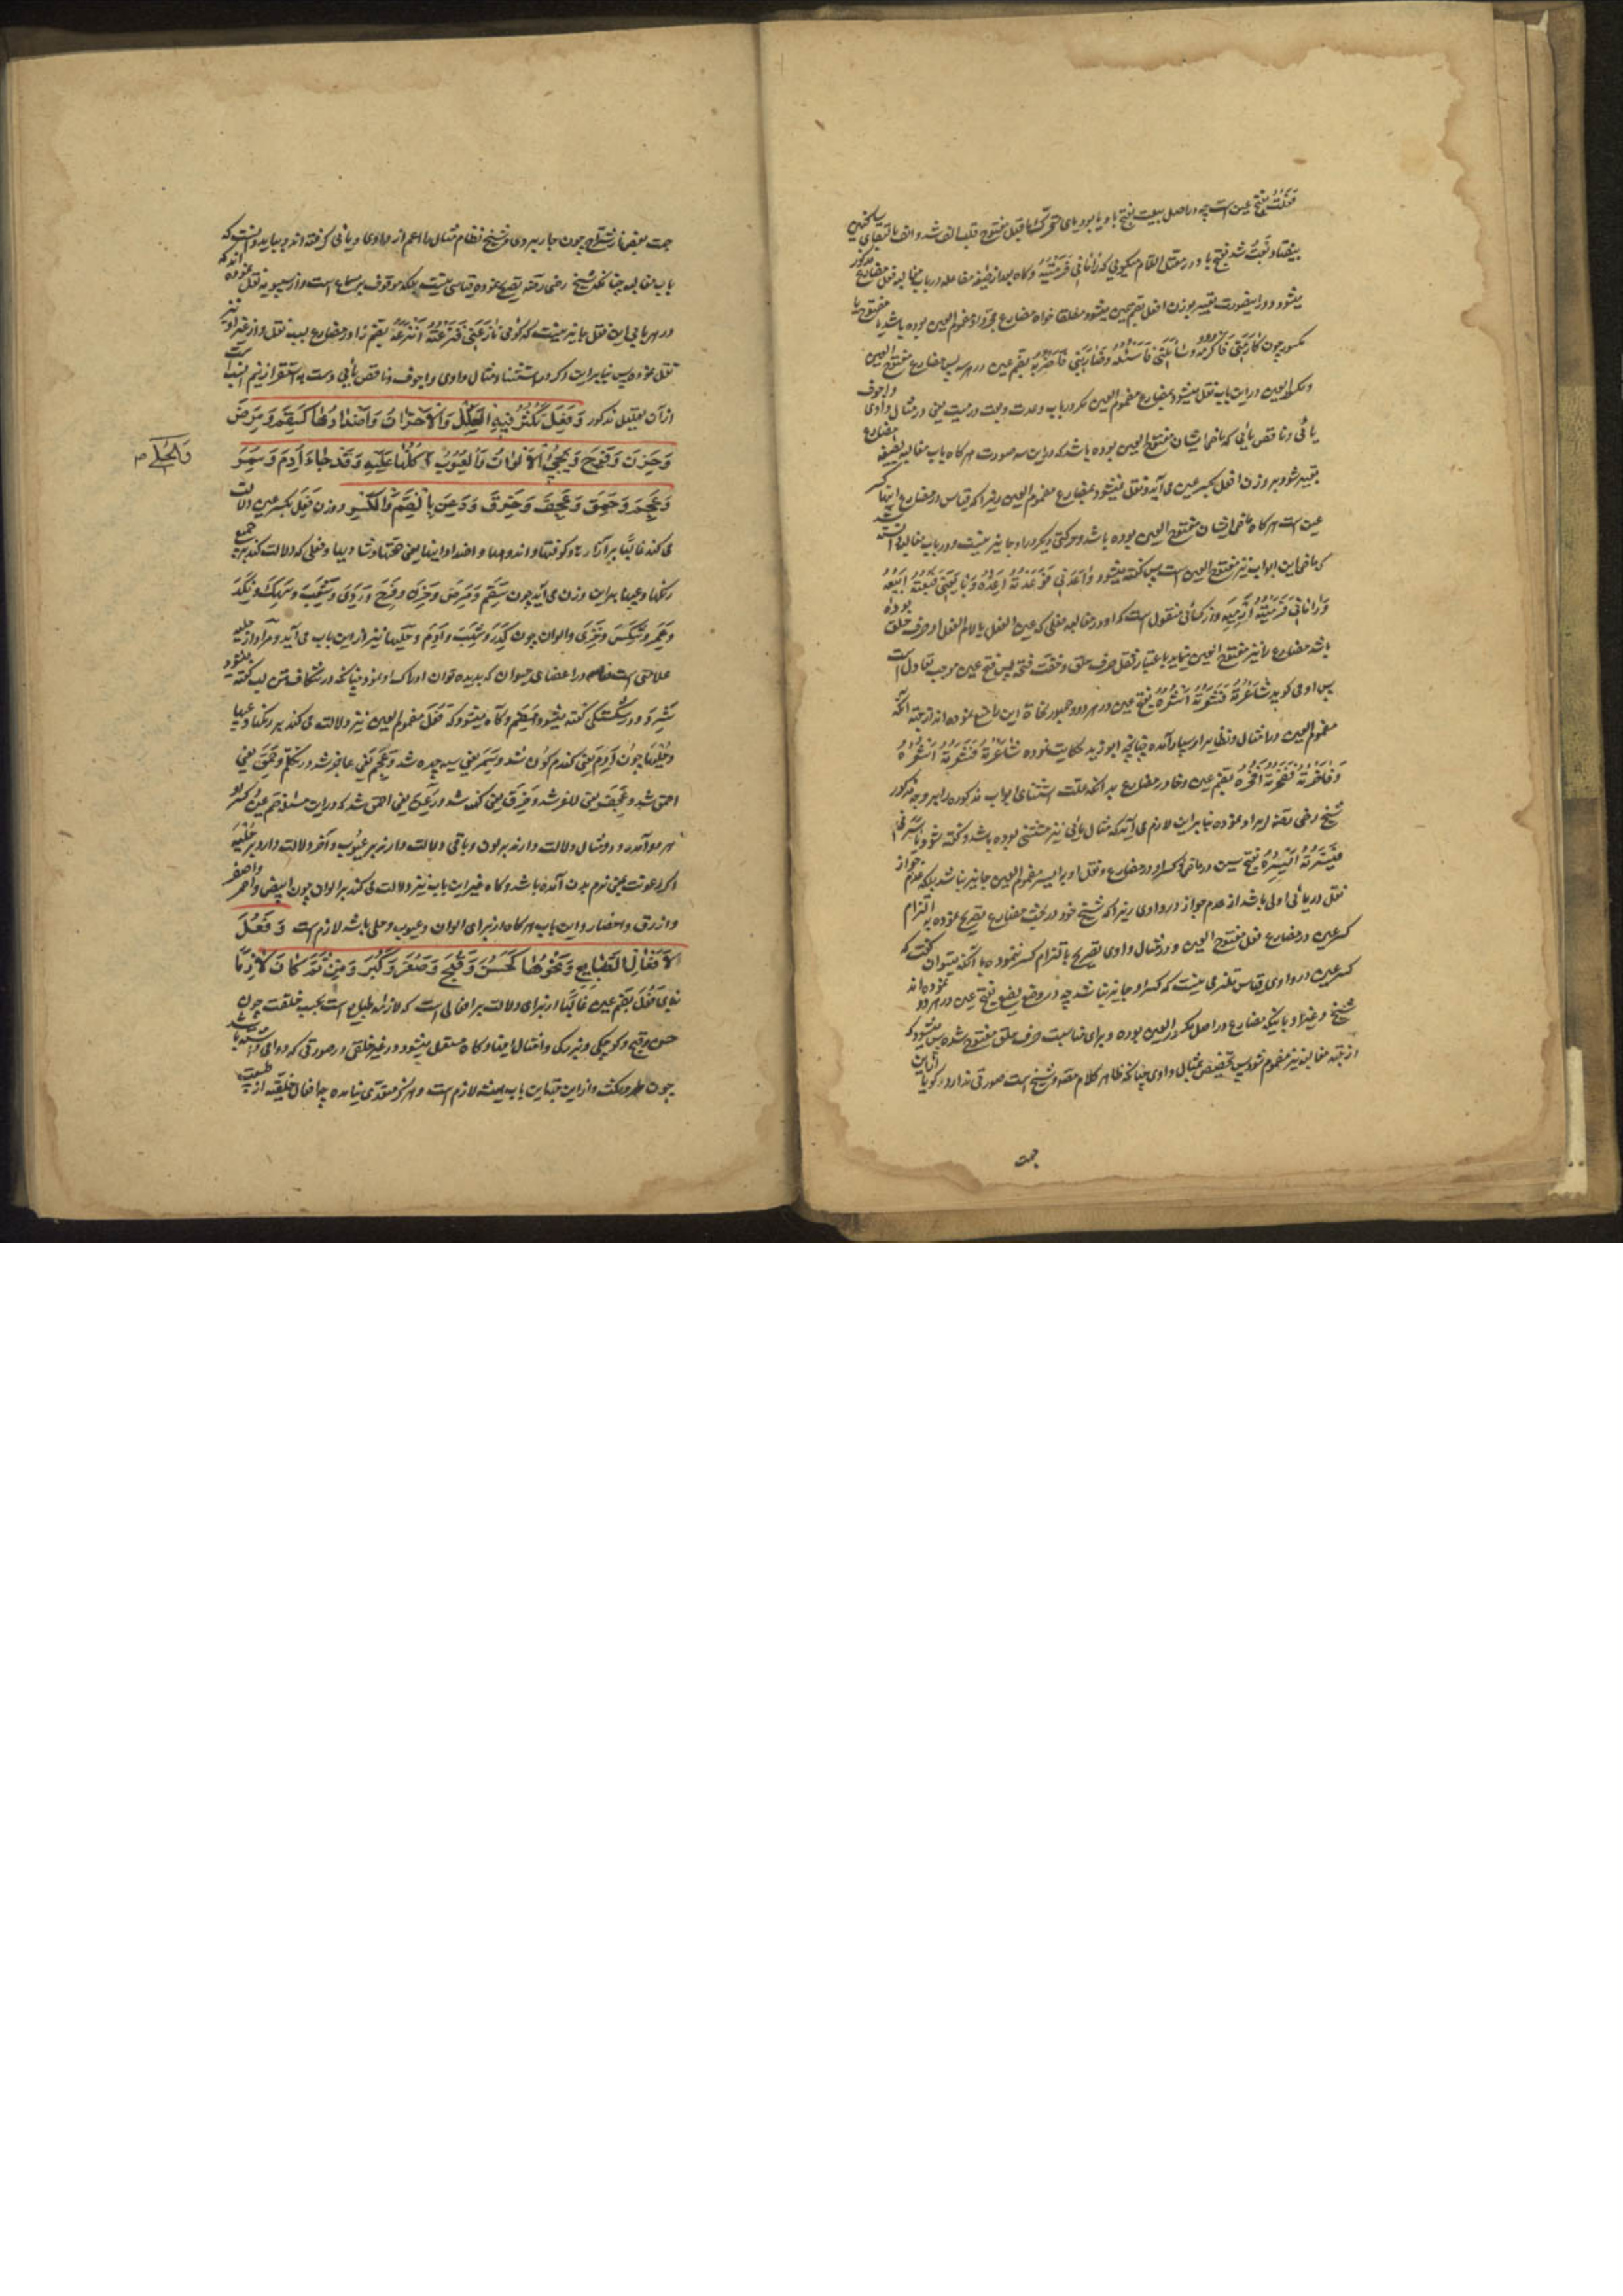 فَعَلْتُ بفتح عین است چه در اصل بیعت بفتح با و یا بود یای متحرک ما قبل مفتوح قلب الف شد و الف بالتقای ساکنین
بیفتاد و بَعْتُ شد بفتح با و در معتل اللام میکویی که رَامَانِی فَرَمَیْتُهُ و کاه بعد از صیغه مفاعله در باب مغالبه فعل مضارع مذکور
میشود و در اینصورت تعبیر بوزن افعل بضم عین میشود مطلقا خواه مضارع مجرد او مضموم العین بوده باشد یا مفتوح یا
مکسور چون کَارَمَنِی فَاَکْرُمُهُ و سَأَلَنِی فَاَسْئُلُهُ وَضَارَبَنِی فَاَضْرُبُهُ بضم عین در هر سه پس مضارع مفتوح العین
و مکسور العین در این باب نقل میشود بمضارع مضموم العین مکر در باب وعدت و بعت و رمیت یعنی در مثال واوی و اجوف
یائی و ناقص یائی که ماضی ایشان مفتوح العین بوده باشد که در این سه صورت هر کاه باب مغالبه بصیغه مضارع
تعبیر شود بر وزن افعل بکسر عین می آید و نقل نمیشود بمضارع مضموم العین زیرا که قیاس در مضارع اینها کسر
عین است هر کاه ماضی ایشان مفتوح العین بوده باشد و حرکتی دیکر در او جایز نیست و در باب مغالبه
که ماضی این ابواب نیز مفتوح العین است پس کفته میشود وَاعَدَنِی فَوَعَدْتُهُ اَعِدُهُ وَ بَایَعَنِی فَبِعْتُهُ اَبِیْعُهُ
وَ رَامَانِی فَرَمَیْتُهُ اَرْمِیْهِ و از کسائی منقول است که او در مغالبه فعلی که عین الفعل یا لام الفعل او حرف حلق بوده
باشد مضارع را نیز مفتوح العین مینماید باعتبار ثقل حرف حلق و خفت فتحه پس فتح عین موجب تعادل است
پس او می کوید شَاعَرْتُهُ فَشَعَرْتُهُ اَشْعَرُهُ بفتح عین در هر دو و جمهور نحاة این را منع نموده اند از جهة آنکه
مضموم العین در امثال و نظایر او بسیار آمده چنانچه ابو زید حکایت نموده شَاعَرْتُهُ فَشَعَرْتُهُ اَشْعُرُهُ
وَ فَاخَرْتُهُ فَفَخَرْتُهُ اَفْخُرُهُ بضم عین و خا در مضارع بدانکه علت استثنای ابواب مذکوره را بهر وجه مذکور
شیخ رضی رضه ایراد نموده بنابراین لازم می آید که مثال یائی نیز مستثنی بوده باشد و کفته شود یَاسَرَنِی
فَیَسَرْتُهُ اَیْسِرُهُ بفتح سین در ماضی و کسر او در مضارع و نقل او بر ایسر مضموم العین جایز نباشد بلکه عدم جواز
نقل در یائی اولی باشد از عدم جواز در واوی زیرا که شیخ خود در بحث مضارع تصریح نموده بر التزام
کسر عین در مضارع فعل مفتوح العین و در مثال واوی تصریح بالتزام کسر ننموده با آنکه میتوان کفت که
کسر عین در واوی قیاس ملتزمی نیست که کسر او جایز نباشد چه در وضع یضع بفتح عین در هر دو نموده اند
شیخ و غیر او باینکه مضارع در اصل مکسور العین بوده و برای مناسبت حرف حلق مفتوح شده پس میشود که
از جهة مغالبه نیز مضموم شود پس تخصیص بمثال واوی چنانکه ظاهر کلام مصه و شیخ است صورتی ندارد و کویا از این
جهت
جهت بعض از شراح چون جاربردی و شیخ نظام مثال را اعم از واوی و یائی کرفته اند و بباید دانست که
باب مغالبه چنانکه شیخ رضی رحمه تصریح نموده قیاسی نیست بلکه موقوف بر سماع است و از سیبویه نقل نموده اند که
در هر بابی این نقل جایز نیست که کوئی نَازَعَنِی فَنَزَعْتُهُ اَنْزُعُهُ بضم زا در مضارع بسبب نقل و از غیر او نیز
نقل نموده پس بنابراین ذکر در استثنا و مثال واوی و اجوف و ناقص یائی درست
از آن بعلتیل مذکور وَ فَعِلَ تَکْثُرُ فِیْهِ الْعِلَلُ وَالْاَحْزَانُ وَاَضْدَادُهَا کَسَقِمَ وَ مَرِضَ
وَ حَزِنَ وَ فَرِحَ وَ یَجِیْءُ الْاَلْوَانُ وَالْعُیُوبُ کُلُّهَا عَلَیْهِ وَ قَدْ جَاءَ اَدِمَ وَ سَمِرَ
وَالْحُلَی ص
وَ عَجِمَ وَ حَمِقَ وَ عَجِفَ وَ خَرِقَ وَ رَعِنَ بِالضَّمِّ وَالْکَسْرِ و وزن فَعِلَ بکسر عین دلالت
می کند غالبًا بر آزارها و کوفتها و اندوهها و اضداد اینها یعنی صحتها و شادیها و فعلی که دلالت کند بر جمیع
رنکها و عیبها براین وزن می آید چون سَقِمَ وَ مَرِضَ وَ حَزِنَ وَ فَرِحَ وَ رَدِیَ وَ شَهِبَ وَ نَکِدَ
وَ عَمِرَ وَ شَکِسَ وَ خَزِیَ و الوان چون کَدِرَ وَ شَهِبَ وَ اَدِمَ و حلیها نیز از این باب می آید و مراد از حلیه
علامتی است ظاهر در اعضای حیوان که بدیده توان ادراک او نمود چنانکه در شکاف شدن لب کفته میشود
شَتِرَ وَ در شکستکی کفته میشود هَضِمَ و کاه میشود که فَعُلَ مضموم العین نیز دلالت می کند بر رنکها و عیبها
و حلیها چون اَدِمَ یعنی کندم کون شد وَ سَمِرَ یعنی سیه چرده شد وَ عَجِمَ یعنی عاجز شد در تکلم وَ حَمِقَ یعنی
احمق شد وَ عَجِفَ یعنی لاغر شد وَ خَرِقَ یعنی کند شد وَ رَعِنَ یعنی احمق شد که در این مثلها ضم عین و کسر او
هر دو آمده و دو مثال دلالت دارند بر لون و باقی دلالت دارند بر عیوب و آخر دلالت دارد بر حلیه
اکر رعونت بمعنی نرم بدن آمده باشد و کاه غیر این باب نیز دلالت می کند بر الوان چون ابیض و احمر و اصفر
و ازرق و اخضار و این باب هر کاه از برای الوان و عیوب و حلی باشد لازم است وَ فَعُلَ
لِاَفْعَالِ الطَّبَایِعِ وَ نَحْوِهَا کَحَسُنَ وَ قَبُحَ وَ صَغُرَ وَ کَبُرَ وَ مِنْ ثَمَّ کَانَ لَازِمًا
بنای فَعُلَ بضم عین غالبًا از برای دلالت بر افعالی است که لازمه طبایع است بحسب خلقت چون
حسن و قبح و کوچکی و بزرکی و امثال اینها و کاه مستعمل میشود در غیر خلقی در صورتی که دوامی داشته باشد
چون طهر و مکث و از این جهة این باب همیشه لازم است و هرکز متعدی نیامده چه افعال خلقیه از طبیعت